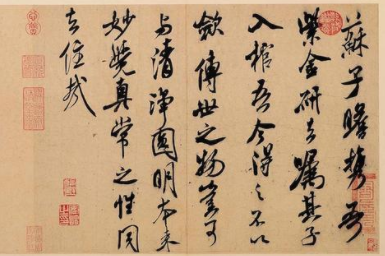 蘇子瞻携吾
紫金研去嘱其子
入棺吾今得之不以
歛傳世之物豈可
与清淨圓明本来
妙覺真常之性同
去住哉